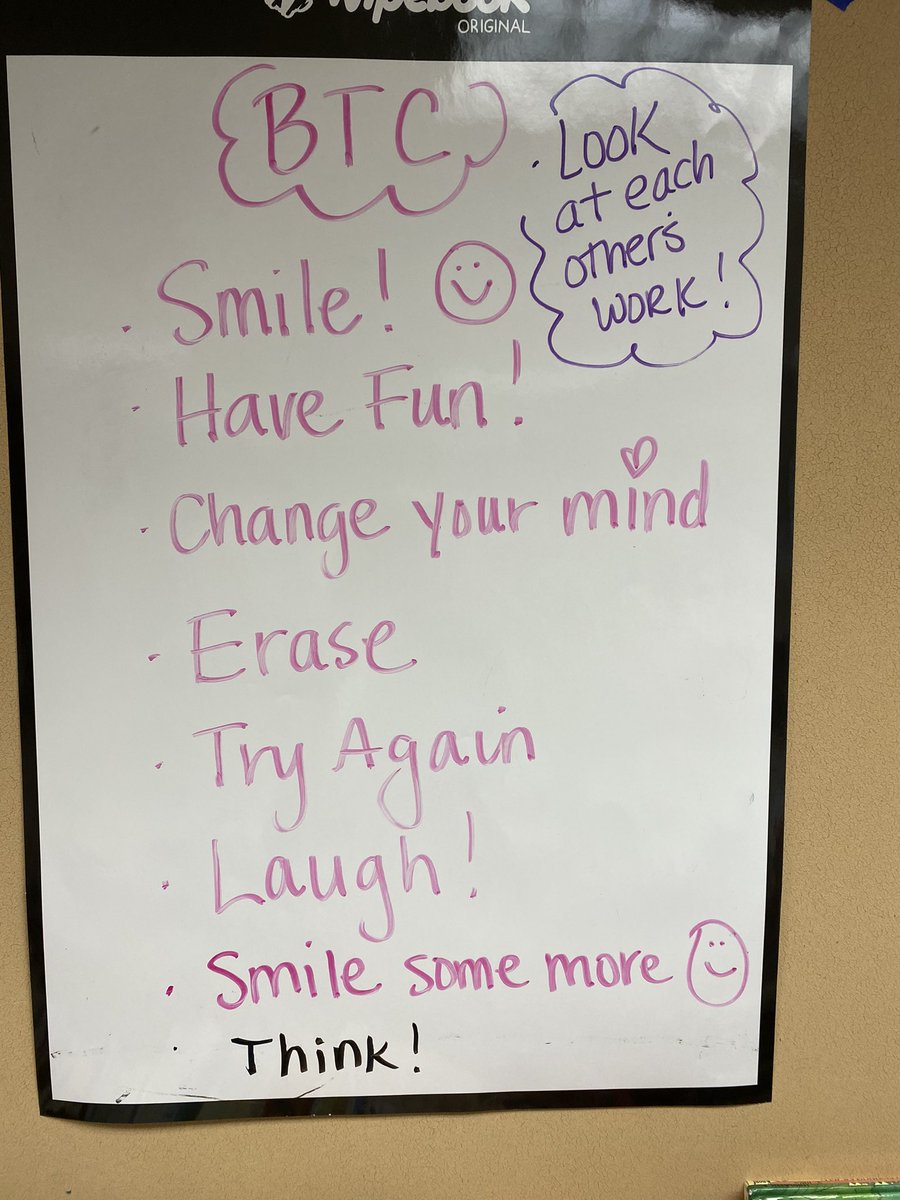 ORIGINAL
BTC
• Look
at each
other's
work!
• Smile!
• Have Fun!
• Change your mind
• Erase
• Try Again
• Laugh!
• Smile some more
• Think!